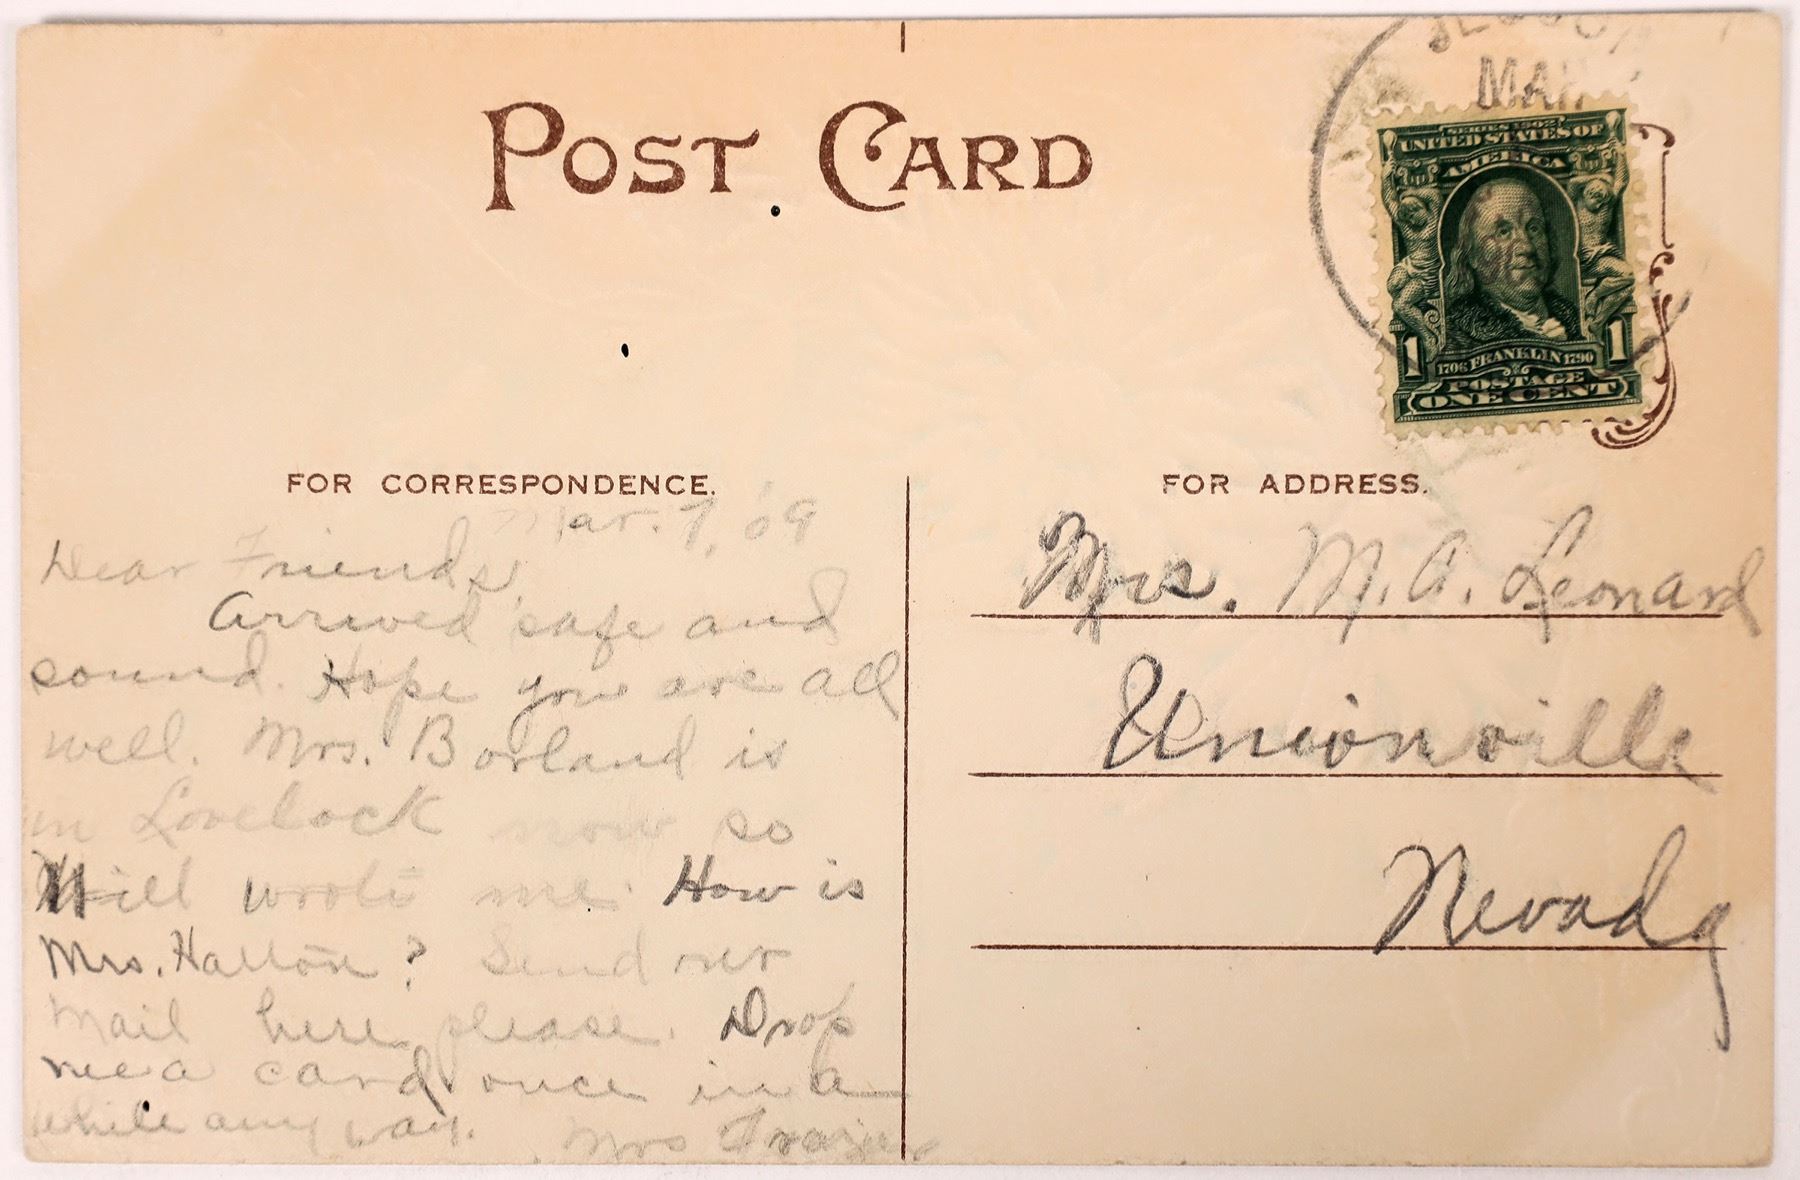 POST CARD
MAR
SERIES 1902
UNITED STATES OF
AMERICA
1 1706 FRANKLIN 1790 1
POSTAGE
ONE CENT
FOR CORRESPONDENCE.
Mar. 7, '09
Dear Friends,
Arrived safe and
sound. Hope you are all
well. Mrs. Borland is
in Lovelock now so
Will wrote me. How is
Mrs. Hatton? Send our
mail here please. Drop
me a card once in a
while any way.
Mrs Frazier
FOR ADDRESS.
Mrs. M. A. Leonard
Unionville
Nevada